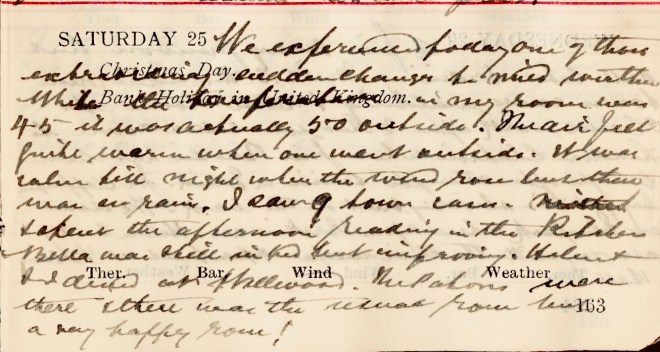 SATURDAY 25 We experienced today one of those
extraordinary sudden changes to mild weather
Christmas Day.
While the temperature in my room was
Bank Holiday in United Kingdom.
45 it was actually 50 outside. The air felt
quite warm when one went outside. It was
calm till night when the wind rose but there
was no rain. I saw 9 town cases.
& spent the afternoon reading in the Kitchen
Bella was still in bed but improving. Helen &
Ther. Bar. Wind Weather
I dined at Hillwood. The Patons were
there & there was the usual row but
163
a very happy row!